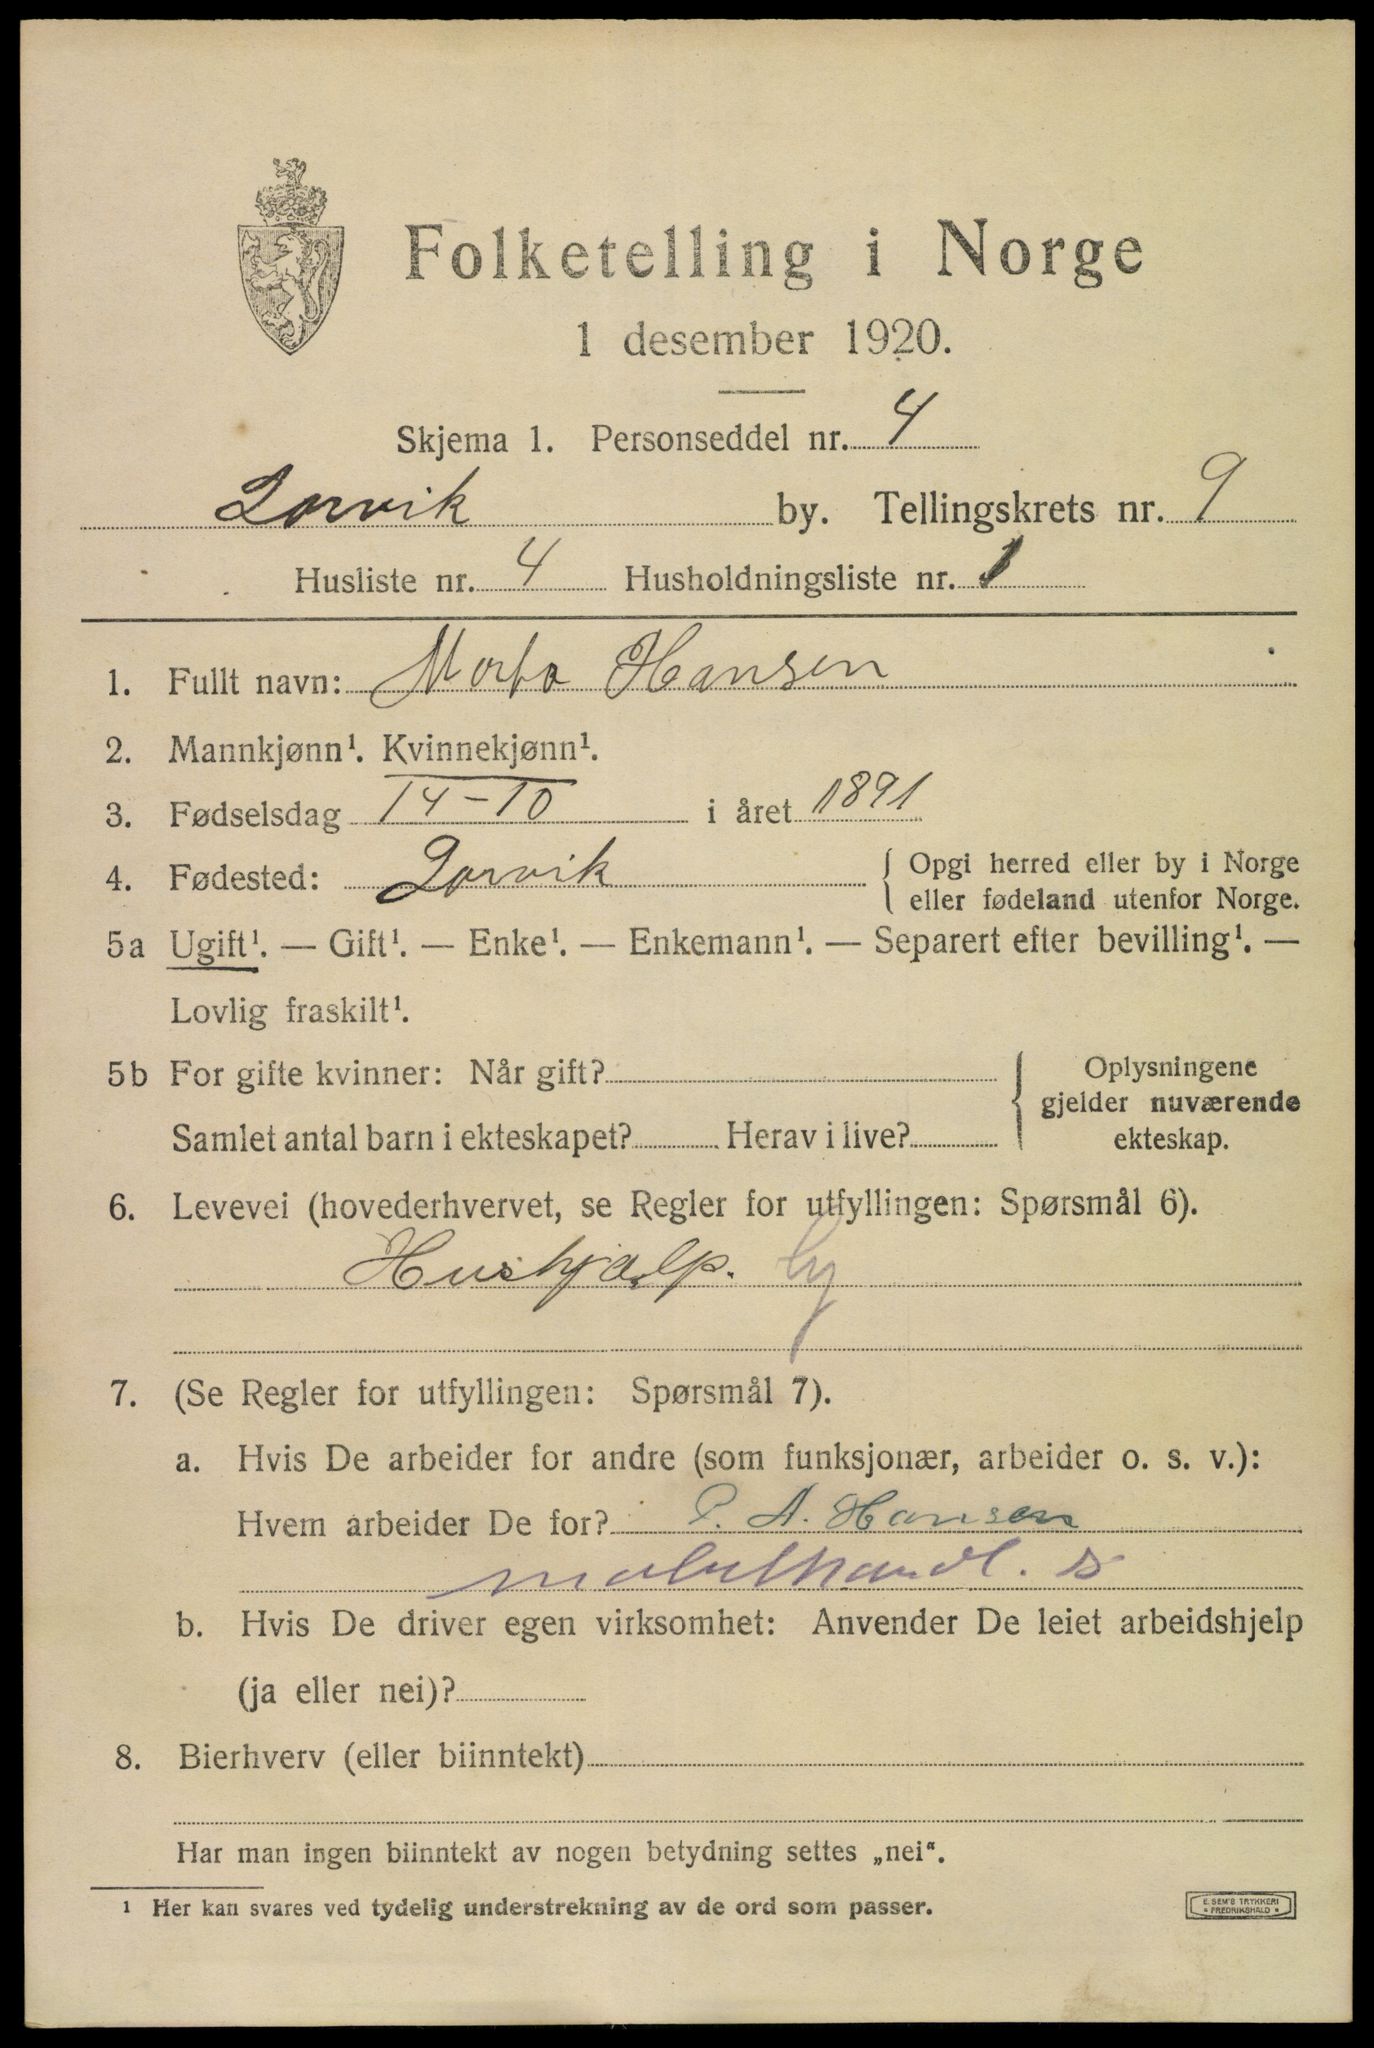 Folketelling i Norge
1 desember 1920.
Skjema 1. Personseddel nr. 4
Larvik by. Tellingskrets nr. 9
Husliste nr. 4 Husholdningsliste nr. 1
1. Fullt navn: Marta Hansen
2. Mannkjønn¹. Kvinnekjønn¹.
3. Fødselsdag 14-10 i året 1891
4. Fødested: Larvik { Opgi herred eller by i Norge
eller fødeland utenfor Norge.
5a Ugift¹. — Gift¹. — Enke¹. — Enkemann¹. — Separert efter bevilling¹. —
Lovlig fraskilt¹.
5b For gifte kvinner: Når gift? { Oplysningene
gjelder nuværende
Samlet antal barn i ekteskapet? Herav i live? ekteskap.
6. Levevei (hovederhvervet, se Regler for utfyllingen: Spørsmål 6).
Hushjælp.
7. (Se Regler for utfyllingen: Spørsmål 7).
a. Hvis De arbeider for andre (som funksjonær, arbeider o. s. v.):
Hvem arbeider De for? P. A. Hansen
møbelhandl.
b. Hvis De driver egen virksomhet: Anvender De leiet arbeidshjelp
(ja eller nei)?
8. Bierhverv (eller biinntekt)
Har man ingen biinntekt av nogen betydning settes „nei“.
¹ Her kan svares ved tydelig understrekning av de ord som passer.
E. SEM'S TRYKKERI
* FREDRIKSHALD *